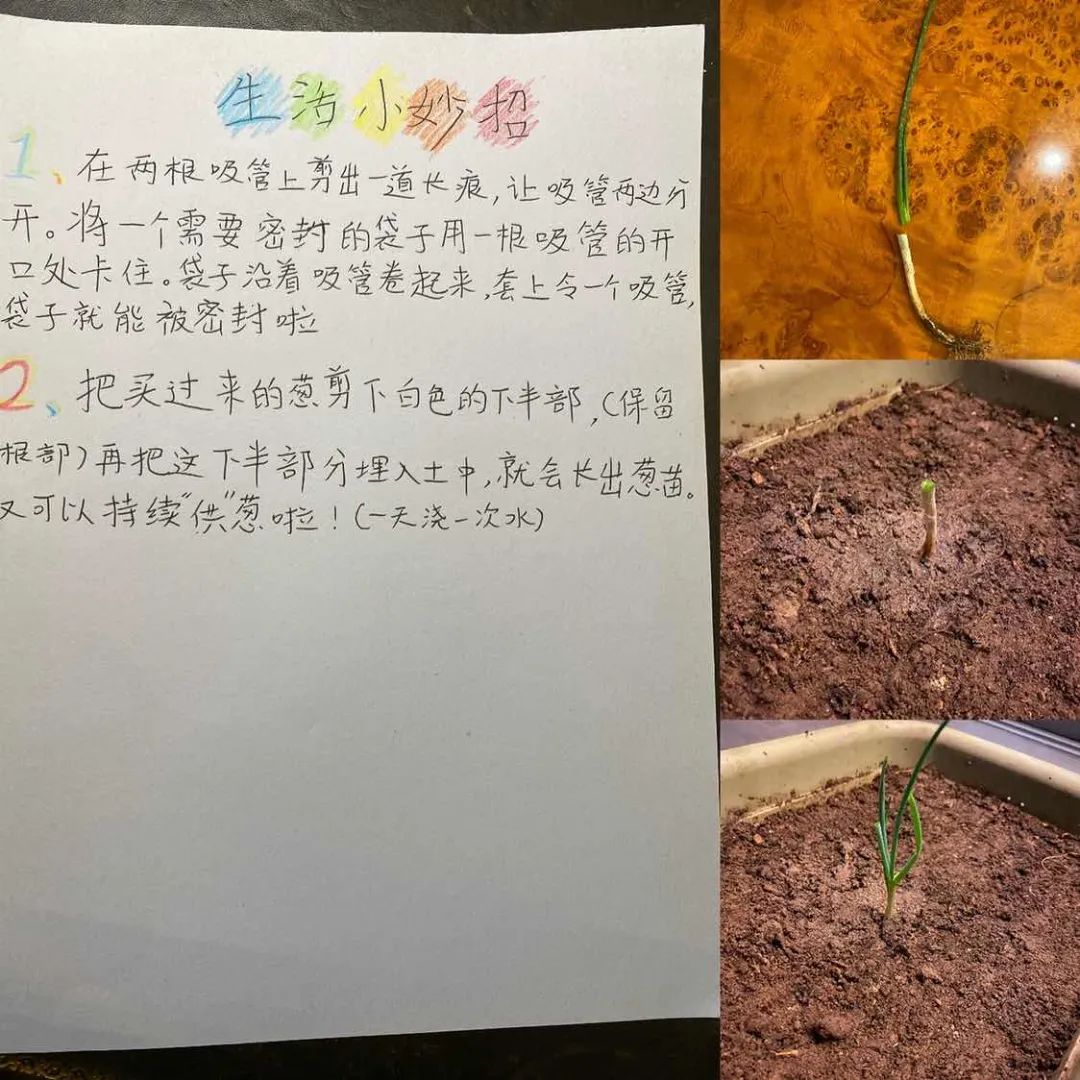 生活小妙招
1、在两根吸管上剪出一道长痕,让吸管两边分
开。将一个需要密封的袋子用一根吸管的开
口处卡住。袋子沿着吸管卷起来,套上令一个吸管,
袋子就能被密封啦
2、把买过来的葱剪下白色的下半部,(保留
根部)再把这下半部分埋入土中,就会长出葱苗。
又可以持续“供”葱啦!(一天浇一次水)